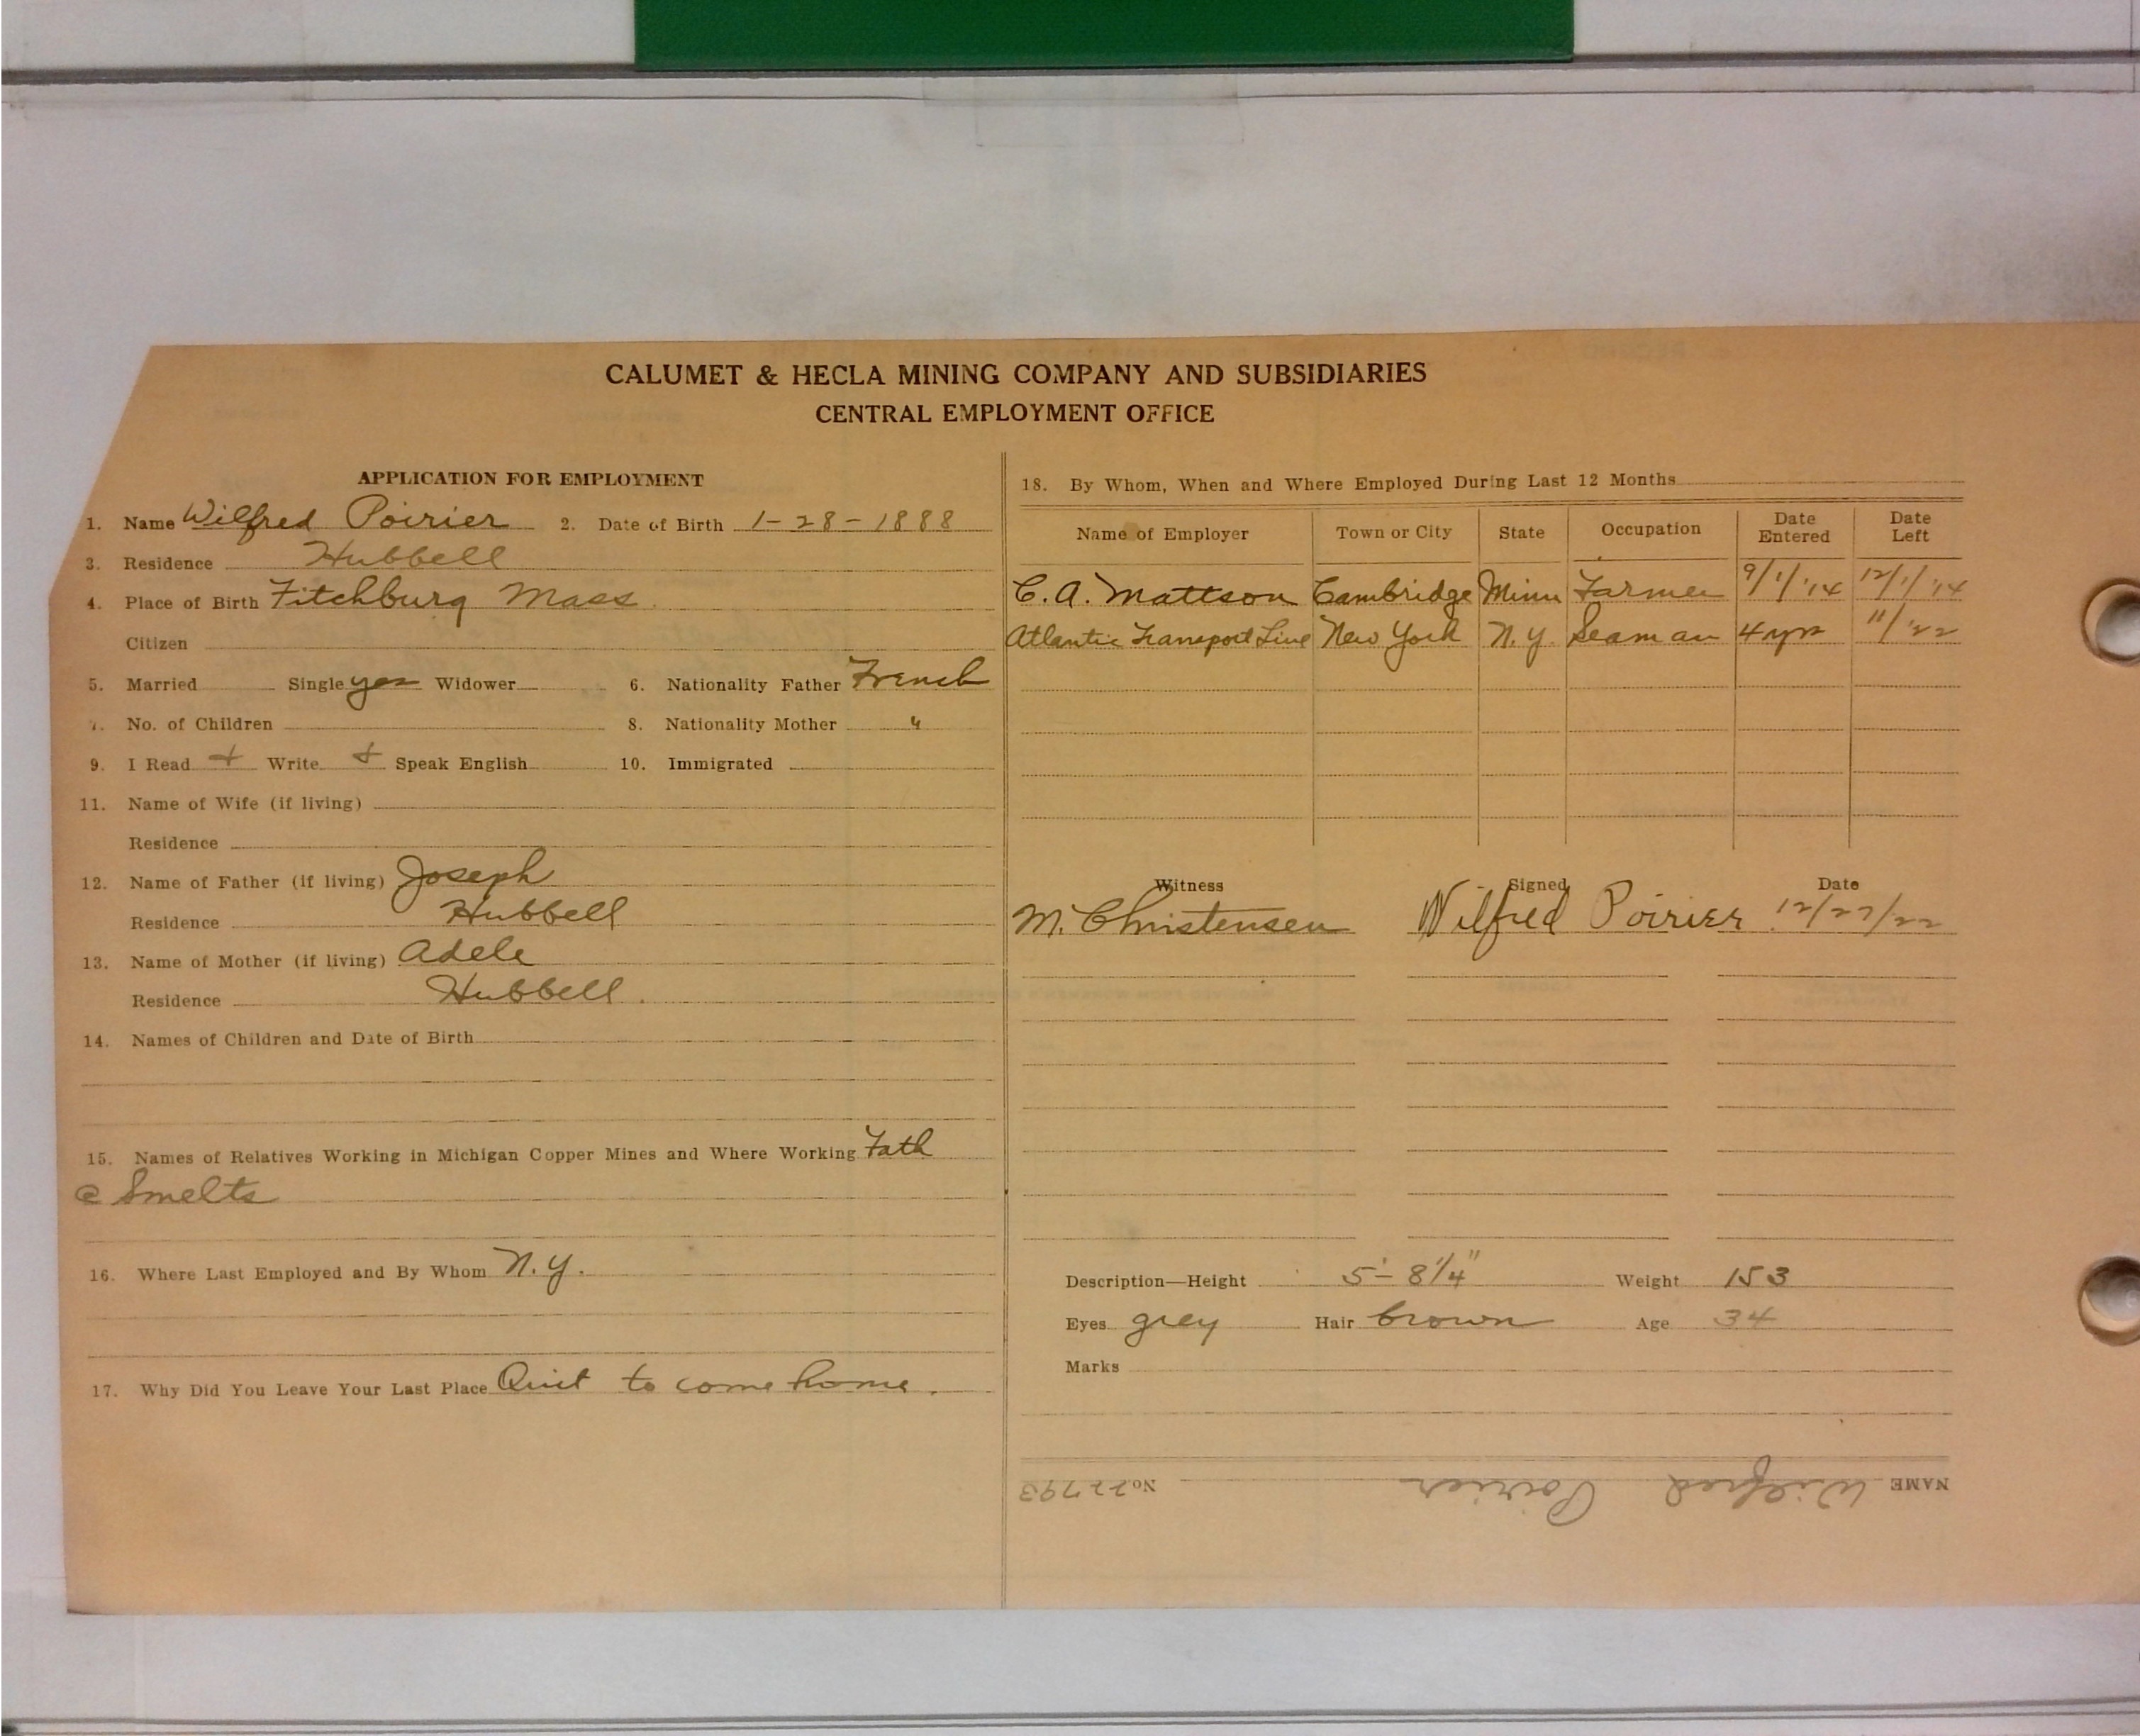 CALUMET & HECLA MINING COMPANY AND SUBSIDIARIES
CENTRAL EMPLOYMENT OFFICE
APPLICATION FOR EMPLOYMENT
1. Name Wilfred Poirier 2. Date of Birth 1-28-1888
3. Residence Hubbell
4. Place of Birth Fitchburg Mass.
Citizen
5. Married Single yes Widower 6. Nationality Father French
7. No. of Children 8. Nationality Mother "
9. I Read + Write + Speak English 10. Immigrated
11. Name of Wife (if living)
Residence
12. Name of Father (if living) Joseph
Residence Hubbell
13. Name of Mother (if living) Adele
Residence Hubbell.
14. Names of Children and Date of Birth
15. Names of Relatives Working in Michigan Copper Mines and Where Working Fath
@ Smelts
16. Where Last Employed and By Whom N.Y.
17. Why Did You Leave Your Last Place Quit to come home.
18. By Whom, When and Where Employed During Last 12 Months
Name of Employer Town or City State Occupation Date Entered Date Left
C. A. Mattson Cambridge Minn Farmer 9/1/'14 12/1/'14
Atlantic Transport Line New York N.Y. Seaman 4 yrs 11/'22
Witness Signed Date
M. Christensen Wilfred Poirier 12/27/22
Description—Height 5'-8 1/4" Weight 153
Eyes grey Hair brown Age 34
Marks
NAME Wilfred Poirier No. 22793